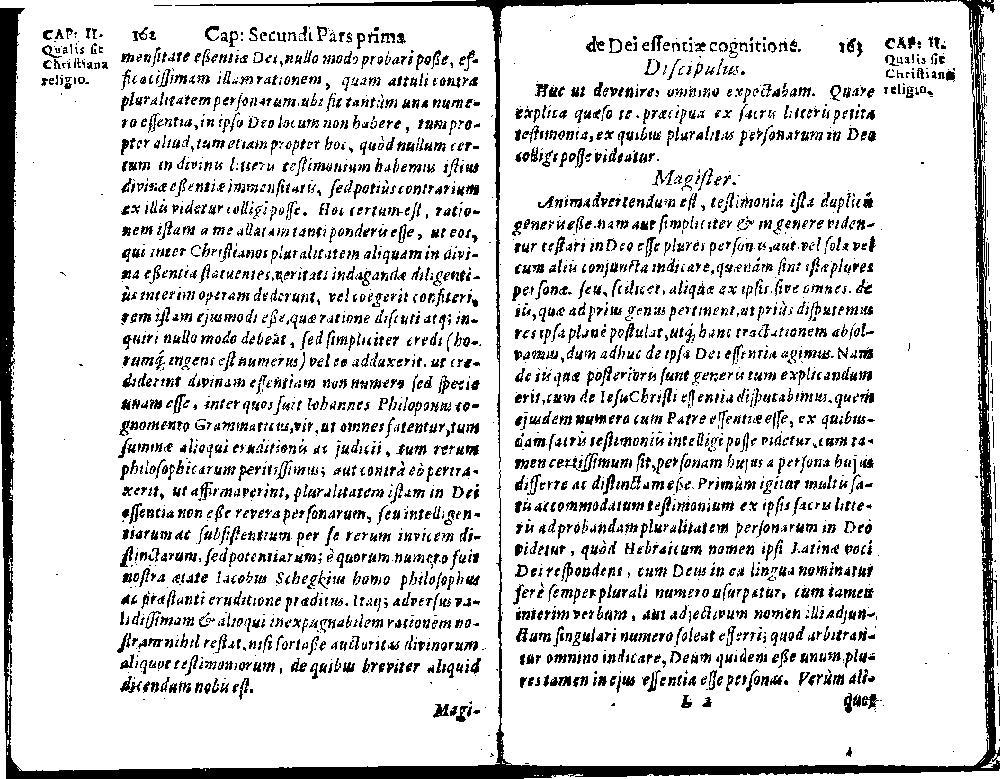 CAP: II.
Qualis sit
Christiana
religio.
162 Cap: Secundi Pars prima
mensitate eßentiæ Dei, nullo modo probari poße, ef-
ficacissimam illam rationem, quam attuli contra
pluralitatem personarum ubi sit tantùm una nume-
ro essentia, in ipso Deo locum non habere, tum pro-
pter aliud, tum etiam propter hoc, quòd nullum cer-
tum in divinis literis testimonium habemus istius
divinæ eßentiæ immensitatis, sed potiùs contrarium
ex illis videtur colligi posse. Hoc certum est, ratio-
nem istam a me allatam tanti ponderis esse, ut eos,
qui inter Christianos pluralitatem aliquam in divi-
na eßentia statuentes, veritati indagandæ diligenti-
ùs interim operam dederunt, vel coëgerit confiteri,
rem istam ejusmodi eße, quæ ratione discuti atq; in-
quiri nullo modo debeat, sed simpliciter credi (ho-
rumq; ingens est numerus) vel eo adduxerit. ut cre-
diderint divinam essentiam non numero sed specie
unam esse, inter quos fuit Iohannes Philoponus co-
gnomento Grammaticus, vir, ut omnes fatentur, tum
summæ alioqui eruditionis ac judicii, tum rerum
philosophicarum peritissimus; aut contrà eò pertra-
xerit, ut affirmaverint, pluralitatem istam in Dei
essentia non eße revera personarum, seu intelligen-
tiarum ac subsistentium per se rerum invicem di-
stinctarum, sed potentiarum; è quorum numero fuit
nostra ætate Iacobus Schegkius homo philosophus
ac præstanti eruditione præditus. Itaq; adversus va-
lidissimam & alioqui inexpugnabilem rationem no-
stram nihil restat, nisi fortaße auctoritas divinorum
aliquot testimoniorum, de quibus breviter aliquid
dicendum nobis est.
Magi-
de Dei essentiæ cognitione. 163
CAP: II.
Qualis sit
Christiana
religio.
Discipulus.
Huc ut devenires omnino expectabam. Quare
explica quæso te præcipua ex sacris litteris petita
testimonia, ex quibus pluralitas personarum in Deo
colligi posse videatur.
Magister.
Animadvertendum est, testimonia ista duplicis
generis eße. nam aut simpliciter & in genere viden-
tur testari in Deo esse plures personas, aut vel sola vel
cum aliis conjuncta indicare, quænam sint istæ plures
personæ. seu, scilicet, aliquæ ex ipsis. sive omnes. de
iis, quæ ad prius genus pertinent, ut priùs disputemus
res ipsa planè postulat, utq; hanc tractationem absol-
vamus, dum adhuc de ipsa Dei essentia agimus. Nam
de iis quæ posterioris sunt generis tum explicandum
erit, cum de Iesu Christi essentia disputabimus, quem
ejusdem numero cum Patre essentiæ esse, ex quibus-
dam sacris testimoniis intelligi posse videtur, cum ta-
men certissimum sit, personam hujus a persona hujus
differre ac distinctam eße. Primùm igitur multis sa-
tis accommodatum testimonium ex ipsis sacris litte-
ris ad probandam pluralitatem personarum in Deo
videtur, quòd Hebraicum nomen ipsi Latinæ voci
Dei respondens, cum Deus in ea lingua nominatur
ferè semper plurali numero usurpatur, cum tamen
interim verbum, aut adjectivum nomen illi adjun-
ctum singulari numero soleat efferri; quod arbitran-
tur omnino indicare, Deum quidem eße unum, plu-
res tamen in ejus essentia esse personas. Verùm ali-
L 2 quot